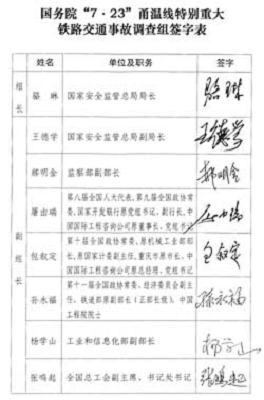 国务院“7·23”甬温线特别重大
铁路交通事故调查组签字表
姓名 单位及职务 签字
组长
骆琳 国家安全监管总局局长 骆琳
副组长
王德学 国家安全监管总局副局长 王德学
郝明金 监察部副部长 郝明金
屠由瑞
第八届全国人大代表，第九届全国政协常
委，国家开发银行原党组书记、副行长，中
国国际工程咨询公司原董事长、党组书记
包叙定
第十届全国政协常委，原机械工业部部
长，原国家计委副主任，重庆市原市长，中
国国际工程咨询公司原总经理、党组书记
包叙定
孙永福
第十一届全国政协常委、经济委员会副主
任，铁道部原副部长（正部长级），中国
工程院院士
孙永福
杨学山 工业和信息化部副部长 杨学山
张鸣起 全国总工会副主席、书记处书记 张鸣起